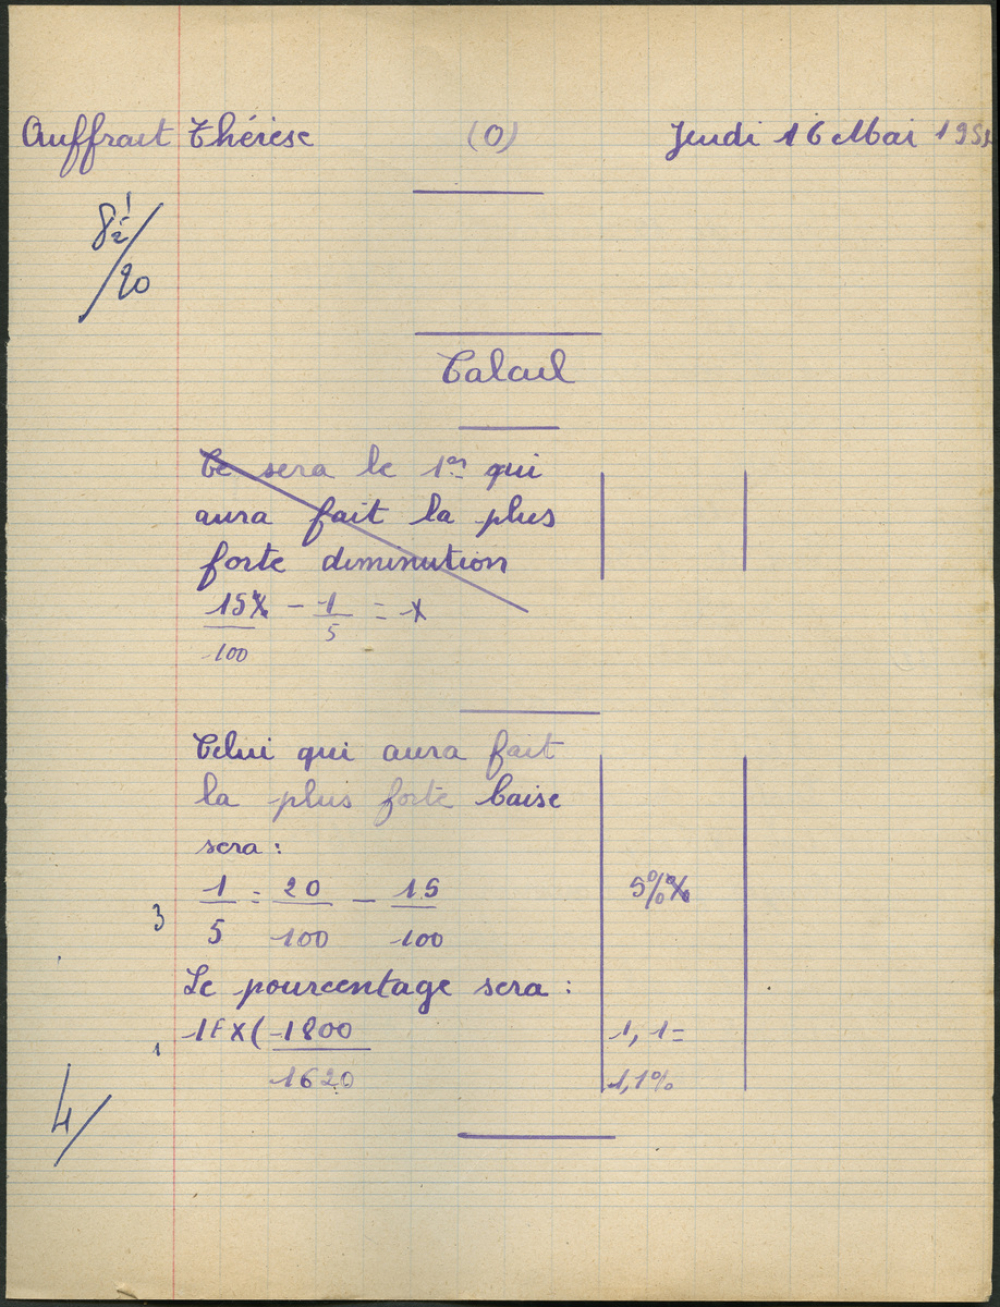 Auffrait Thérèse (0) Jeudi 16 Mai 195
8 1/2 / 20
Calcul
Ce sera le 1er qui
aura fait la plus
forte diminution
15% / 100 - 1/5 = x
Celui qui aura fait
la plus forte baise
sera :
3 1/5 = 20/100 - 15/100 5%
Le pourcentage sera :
1 1F X ( 1800 / 1620 1,1 =
1,1%
4/